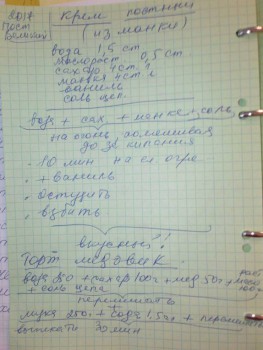 2017 Крем постный
Пост (из манки)
Великий
вода 1,5 ст
масло раст 0,5 ст
сахар 4 ст. л
манка 4 ст. л
ваниль
соль щеп
вода + сах + манка + соль,
на огонь, помешивая
до закипания
. 10 мин на сл. огне
. + ваниль
. остудить
. взбить
вкусный!!
Торт медовик.
вода 250 + сахар 100г + мед 50г +
+ соль щепа
перемешать
мука 250г + сода 1,5 ч л + перемешать
выпекать 30 мин